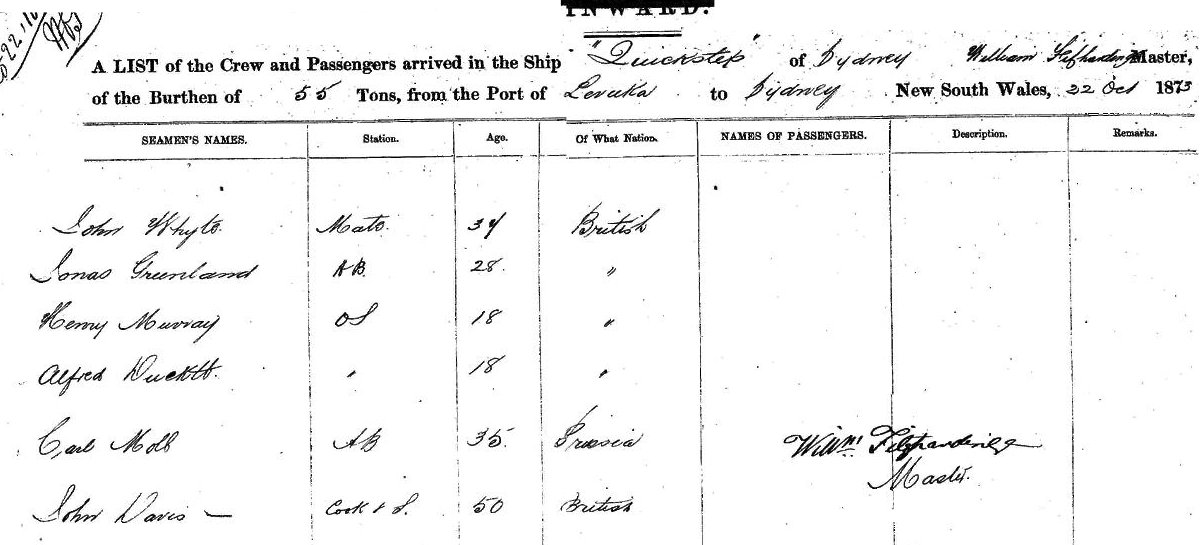 INWARD.
A LIST of the Crew and Passengers arrived in the Ship "Quickstep" of Sydney William Master,
of the Burthen of 55 Tons, from the Port of Levuka to Sydney New South Wales, 22 Oct 1875
SEAMEN'S NAMES. Station. Age. Of What Nation. NAMES OF PASSENGERS. Description. Remarks.
John Whyte Mate 34 British
Jonas Greenland AB 28 "
Henry Murray OS 18 "
Alfred Duckett " 18 "
Carl Moll AB 35 Prussia Willm. Fitzhardinge
Master
John Davis — Cook & S. 50 British